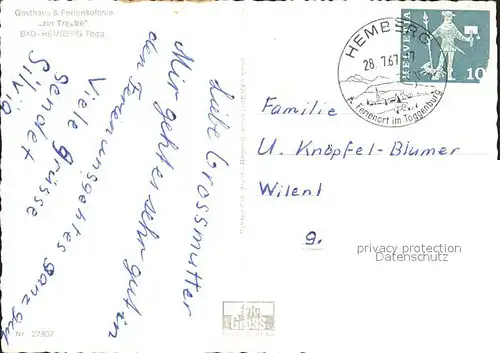 Gasthaus & Ferienkolonie
„zur Traube"
BXD-HEMBERG Togg.
Liebe Grossmutter
Mir geht es sehr gut in
den Ferien uns geht es ganz gut
Viele grüsse
sendet
Silvia
Nr. 27937
foto
GROSS
HEMBERG
28.7.67
Ferienort im Toggenburg
HELVETIA
10
Familie
U. Knöpfel-Blumer
Wilent
9.
privacy protection
watermark